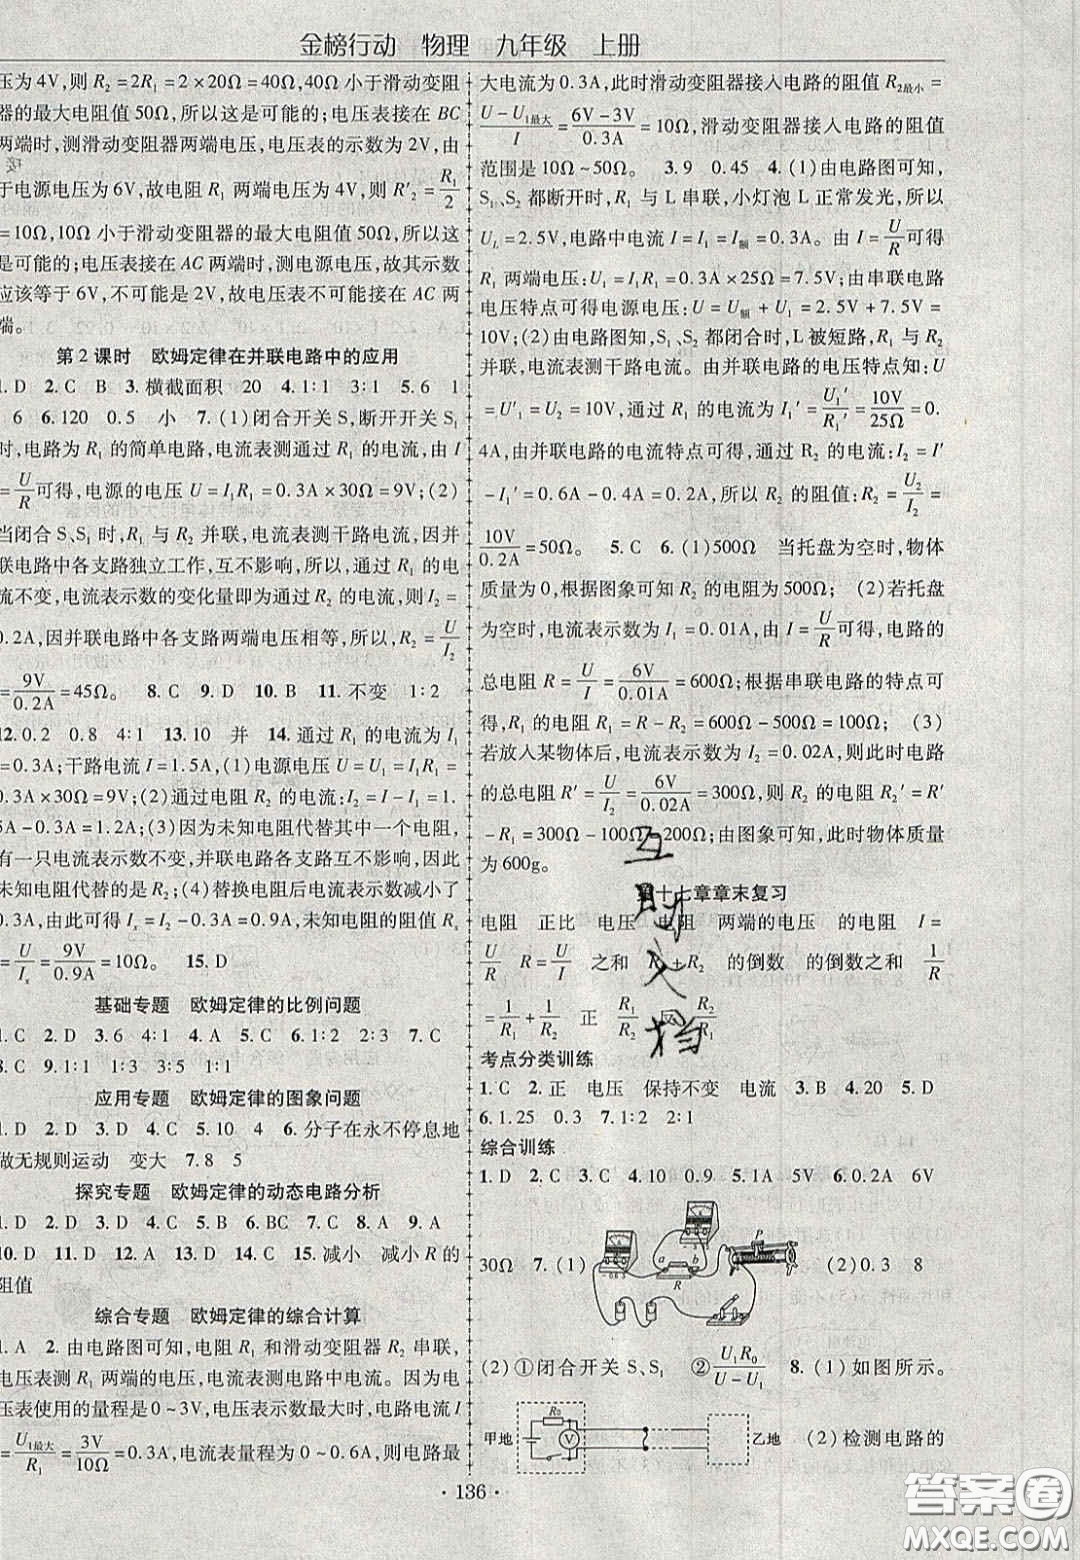 金榜行动 物理 九年级 上册
压为4V,则R₂=2R₁=2×20Ω=40Ω,40Ω小于滑动变阻
器的最大电阻值50Ω,所以这是可能的;电压表接在BC
两端时,测滑动变阻器两端电压,电压表的示数为2V,由
于电源电压为6V,故电阻R₁两端电压为4V,则R′₂=R₁/2
=10Ω,10Ω小于滑动变阻器的最大电阻值50Ω,所以这
是可能的;电压表接在AC两端时,测电源电压,故其示数
应该等于6V,不可能是2V,故电压表不可能接在AC两
端。
第2课时 欧姆定律在并联电路中的应用
1.D 2.C B 3.横截面积 20 4.1∶1 3∶1 5.6 1
6 6.120 0.5 小 7.(1)闭合开关S,断开开关S₁
时,电路为R₁的简单电路,电流表测通过R₁的电流,由I
=U/R可得,电源的电压U=I₁R₁=0.3A×30Ω=9V;(2)
当闭合S、S₁时,R₁与R₂并联,电流表测干路电流,因并
联电路中各支路独立工作,互不影响,所以,通过R₁的电
流不变,电流表示数的变化量即为通过R₂的电流,则I₂=
0.2A,因并联电路中各支路两端电压相等,所以,R₂=U/I₂
=9V/0.2A=45Ω。 8.C 9.D 10.B 11.不变 1∶2
12.0.2 0.8 4∶1 13.10 并 14.通过R₁的电流为I₁
=0.3A;干路电流I=1.5A,(1)电源电压U=U₁=I₁R₁=
0.3A×30Ω=9V;(2)通过电阻R₂的电流:I₂=I-I₁=1.
5A-0.3A=1.2A;(3)因为未知电阻代替其中一个电阻,
有一只电流表示数不变,并联电路各支路互不影响,因此
未知电阻代替的是R₂;(4)替换电阻后电流表示数减小了
0.6A,由此可得Iₓ=I₂-0.3A=0.9A,未知电阻的阻值Rₓ
=U/Iₓ=9V/0.9A=10Ω。 15.D
基础专题 欧姆定律的比例问题
1.C 2.D 3.6 4∶1 4.A 5.C 6.1∶2 2∶3 7.C
8.C 9.1∶1 1∶3 3∶5 1∶1
应用专题 欧姆定律的图象问题
1.D 2.D 3.D 4.C 5.10 4 6.分子在永不停息地
做无规则运动 变大 7.8 5
探究专题 欧姆定律的动态电路分析
1.D 2.D 3.D 4.C 5.B 6.BC 7.C 8.A 9.A
10.D 11.D 12.A 13.D 14.C 15.减小 减小R的
阻值
综合专题 欧姆定律的综合计算
1.A 2.由电路图可知,电阻R₁和滑动变阻器R₂串联,
电压表测R₁两端的电压,电流表测电路中电流。因为电
压表使用的量程是0~3V,电压表示数最大时,电路电流I
=U₁最大/R₁=3V/10Ω=0.3A,电流表量程为0~0.6A,则电路最
大电流为0.3A,此时滑动变阻器接入电路的阻值R₂最小=
U-U₁最大/I=6V-3V/0.3A=10Ω,滑动变阻器接入电路的阻值
范围是10Ω~50Ω。 3.9 0.45 4.(1)由电路图可知,
S₁、S₂都断开时,R₁与L串联,小灯泡L正常发光,所以
U_L=2.5V,电路中电流I=I₁=I额=0.3A。由I=U/R可得
R₁两端电压:U₁=I₁R₁=0.3A×25Ω=7.5V;由串联电路
电压特点可得电源电压:U=U额+U₁=2.5V+7.5V=
10V;(2)由电路图知,S₁、S₂都闭合时,L被短路,R₁、R₂并
联,电流表测干路电流。由并联电路的电压特点知:U
=U′₁=U₂=10V,通过R₁的电流为I₁′=U₁′/R₁′=10V/25Ω=0.
4A,由并联电路的电流特点可得,通过R₂的电流:I₂=I′
-I₁′=0.6A-0.4A=0.2A,所以R₂的阻值:R₂=U₂/I₂=
10V/0.2A=50Ω。 5.C 6.(1)500Ω 当托盘为空时,物体
质量为0,根据图象可知R₂的电阻为500Ω; (2)若托盘
为空时,电流表示数为I₁=0.01A,由I=U/R可得,电路的
总电阻R=U/I=6V/0.01A=600Ω;根据串联电路的特点可
得,R₁的电阻R₁=R-R₂=600Ω-500Ω=100Ω; (3)
若放入某物体后,电流表示数为I₂=0.02A,则此时电路
的总电阻R′=U/I₂=6V/0.02A=300Ω,则此时R₂的电阻R₂=R′
-R₁=300Ω-100Ω=200Ω;由图象可知,此时物体质量
为600g。
第十七章章末复习
电阻 正比 电压 电阻 两端的电压 的电阻 I=
U/R R=U/I 之和 R₁+R₂ 的倒数 的倒数之和 1/R
=1/R₁+1/R₂ 正 R₁/R₂ 反 R₂/R₁
考点分类训练
1.C 2.正 电压 保持不变 电流 3.B 4.20 5.D
6.1.25 0.3 7.1∶2 2∶1
综合训练
1.D 2.C 3.C 4.10 0.9 5.1A 5V 6.0.2A 6V
30Ω 7.(1) a b R P (2)0.3 8
(2)①闭合开关S、S₁ ②U₁R₀/U-U₁ 8.(1)如图所示。
甲地 R₀ V 乙地 (2)检测电路的
互助文档
· 136 ·
答案圈
MXQE.COM